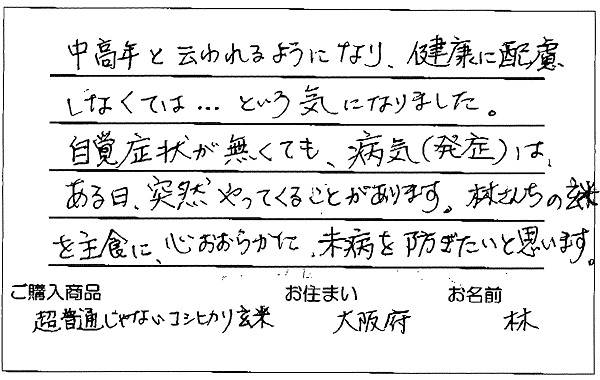 中高年と云われるようになり、健康に配慮
しなくては…という気になりました。
自覚症状が無くても、病気(発症)は、
ある日、突然やってくることがあります。林さんちの玄米
を主食に、心おおらかに、未病を防ぎたいと思います。
ご購入商品 お住まい お名前
超普通じゃないコシヒカリ玄米 大阪府 林